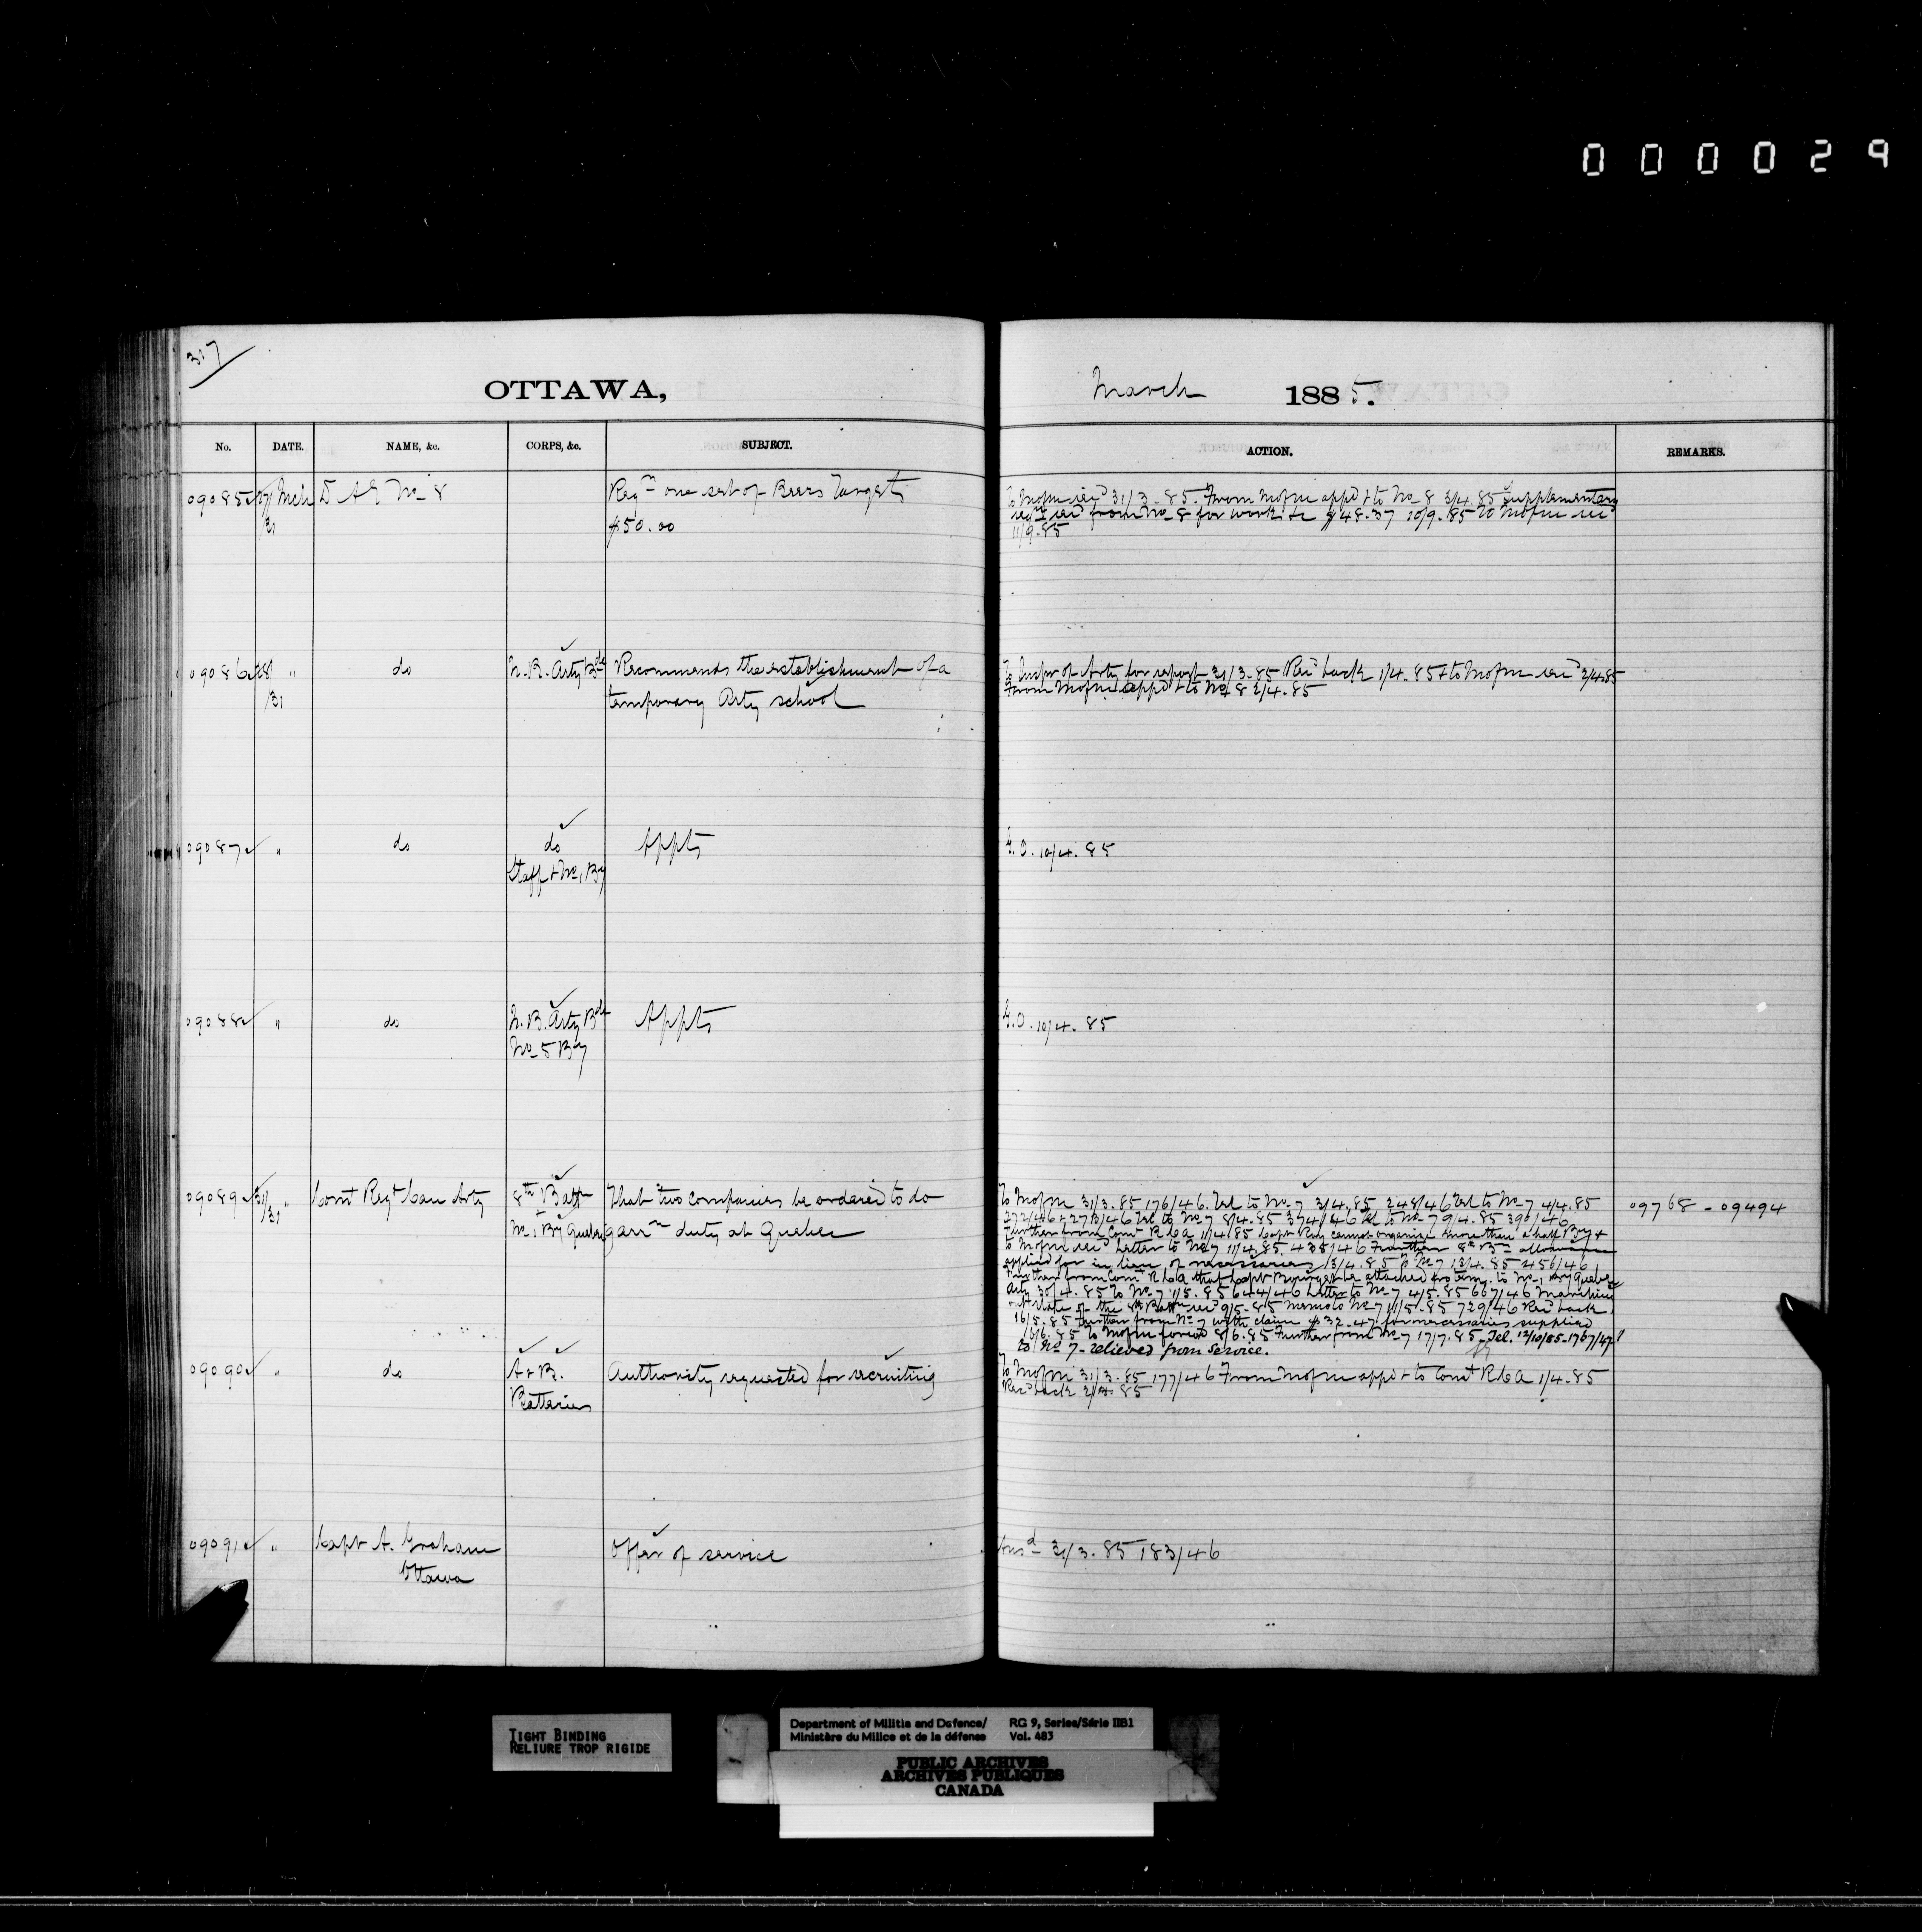 000029
317
OTTAWA,
March 1885.
No. DATE. NAME, &c. CORPS, &c. SUBJECT.
ACTION. REMARKS.
09085 27/ Mch D A G No 8 Reqn one set of Beers Targets
/31 $50.00
To Mofm recd 31/3.85. From Mofm appd & to No 8 3/4.85 supplementary
reqn recd from No 8 for work &c $48.37 10/9.85 To Mofm recd
11/9.85
09086 28/ " do N.B. Arty Bde Recommends the establishment of a
/31 temporary Arty school
To Inspr of Arty for report 31/3.85 Recd back 1/4.85 & to Mofm recd 2/4.85
From Mofm appd & to No 8 2/4.85
09087 " do do Appts
Staff & No 1 By
G.O. 10/4.85
09088 " do N.B. Arty Bde Appts
No 5 By
G.O. 10/4.85
09089 31/ " Comt Regt Can Arty 8th Battn That two companies be ordered to do
/31 No 1 By Quebec garrn duty at Quebec
To Mofm 31/3.85 176/46. Tel to No 7 3/4.85 248/46 Tel to No 7 4/4.85
272/46 & 273/46 Tel to No 7 8/4.85 374/46 Tel to No 7 9/4.85 390/46
Further from Comt R C A 11/4/85 Capt Ray cannot organize more than a half By &
to Mofm recd Letter to No 7 11/4.85. 435/46 Further 8th Bn allowance
applied for in lieu of necessaries 13/4.85 No 7 13/4.85 456/46
Further from Comt R C A that Capt Bourget be attached pro tem. to No 1 By Quebec
Arty 30/4.85 To No 7 1/5.85 644/46 Letter to No 7 4/5.85 667/46 Marching
out state of the 8th Battn recd 9/5.85 Memo to No 7 11/5.85 729/46 Recd back
16/5.85 Further from No 7 with claim $32.47 for necessaries supplied
6/6.85 To Mofm forwd 8/6.85 Further from No 7 17/7.85 - Tel. 12/10/85-1767/47
to No 7 - relieved from service.
09768 - 09494
09090 " do A & B. Authority requested for recruiting
Batteries
To Mofm 31/3.85 177/46 From Mofm appd & to Comt R C A 1/4.85
Recd back 2/4.85
09091 " Capt A. Graham Offer of service
Ottawa
Ansd 31/3.85 183/46
TIGHT BINDING
RELIURE TROP RIGIDE
Department of Militia and Defence/ RG 9, Series/Série IIB1
Ministère du Milice et de la défense Vol. 483
PUBLIC ARCHIVES
ARCHIVES PUBLIQUES
CANADA